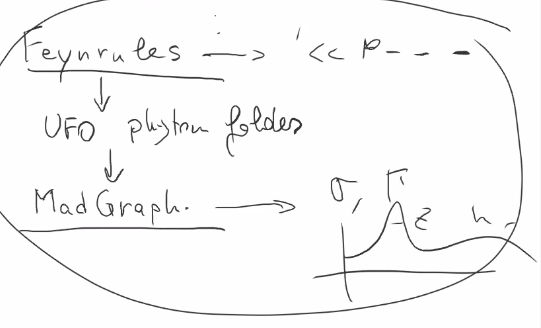 Feynrules → << P - - -
↓
UFO phyton foldes
↓
MadGraph. → σ, Γ
Z h